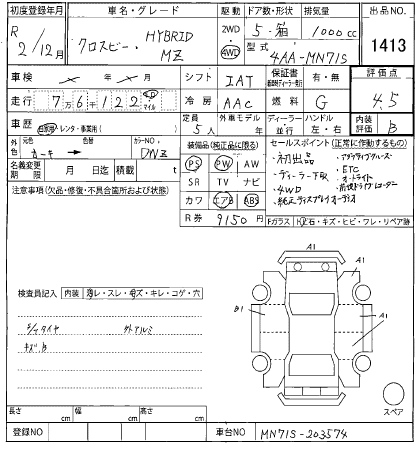 初度登録年月 車名・グレード 駆動 ドア数・形状 排気量 出品NO
R 2/12月 クロスビー HYBRID MZ 2WD 4WD 5・箱 1000cc 1413
型式 4AA-MN71S
車検 シフト IAT 保証書 有・無 評価点
走行 7万6千122 マイル 冷房 AAC 燃料 G 4.5
車歴 自家用・レンタ・事業用( ) 定員 5人 外車モデル 年 ディーラー 並行 ハンドル 左・右 内装評価 B
外色 元色 カーキ 色替 カラーNO. DNZ
装備品(純正品に限る) セールスポイント(正常に作動するもの)
名義変更期限 月 日 積載 t
PS PW AW ・初出品 ・アダプティブクルーズ
注意事項(欠品・修復・不具合箇所および状態) SR TV ナビ ・ディーラー下取 ・ETC
・オートライト
カワ エアB ABS ・4WD ・前後ドライブレコーダー
・純正ディスプレイオーディオ
R券 9150円 Fガラス 飛石・キズ・ヒビ・ワレ・リペア跡
A1
検査員記入 内装 汚レ・スレ・キズ・キレ・コゲ・穴
B1 A1
タイヤ 外アルミ
キズB
A1
スペア
長さ cm 幅 cm 高さ cm
登録NO 車台NO MN71S-203574